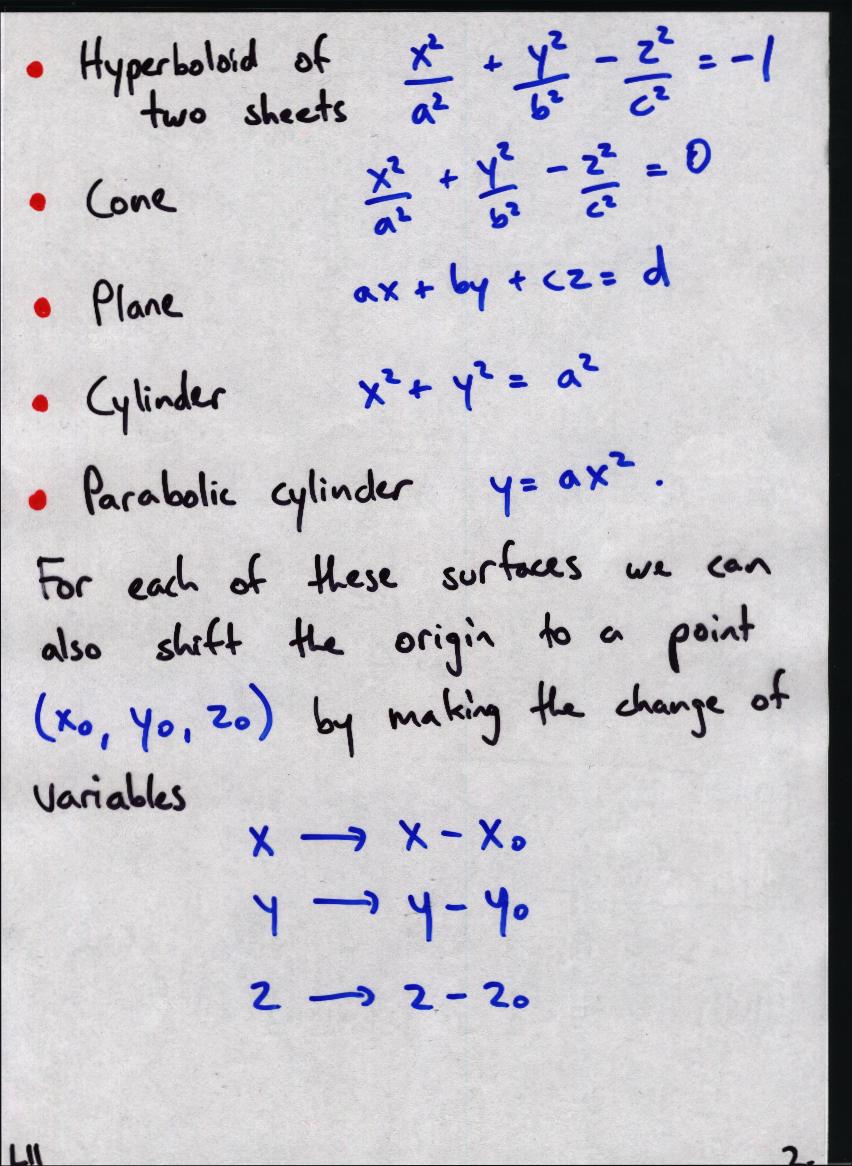 • Hyperboloid of two sheets x²/a² + y²/b² - z²/c² = -1
• Cone x²/a² + y²/b² - z²/c² = 0
• Plane ax + by + cz = d
• Cylinder x² + y² = a²
• Parabolic cylinder y = ax².
For each of these surfaces we can
also shift the origin to a point
(x₀, y₀, z₀) by making the change of
variables
x → x - x₀
y → y - y₀
z → z - z₀